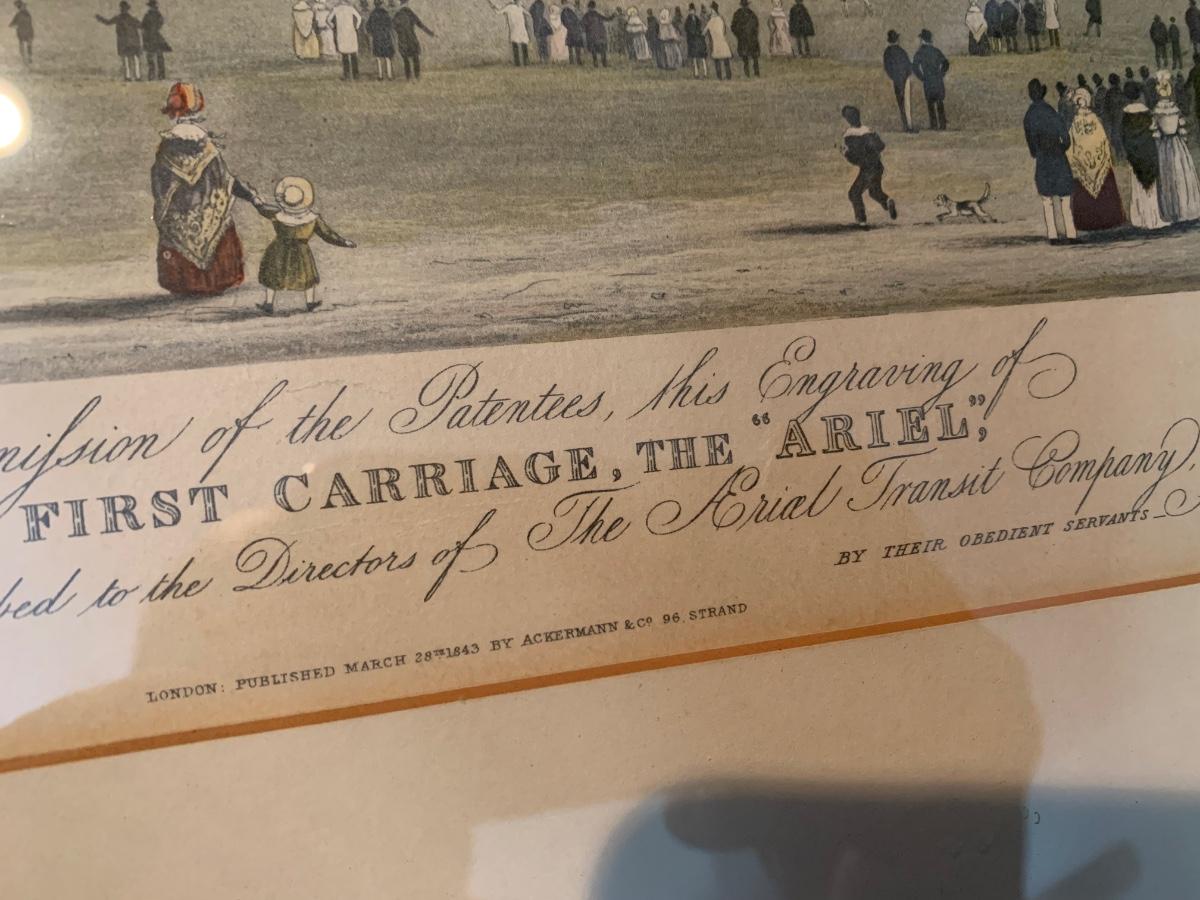 mission of the Patentees, this Engraving of
FIRST CARRIAGE, THE "ARIEL,"
bed to the Directors of The Ærial Transit Company,
BY THEIR OBEDIENT SERVANTS
LONDON: PUBLISHED MARCH 28TH 1843 BY ACKERMANN & CO 96, STRAND